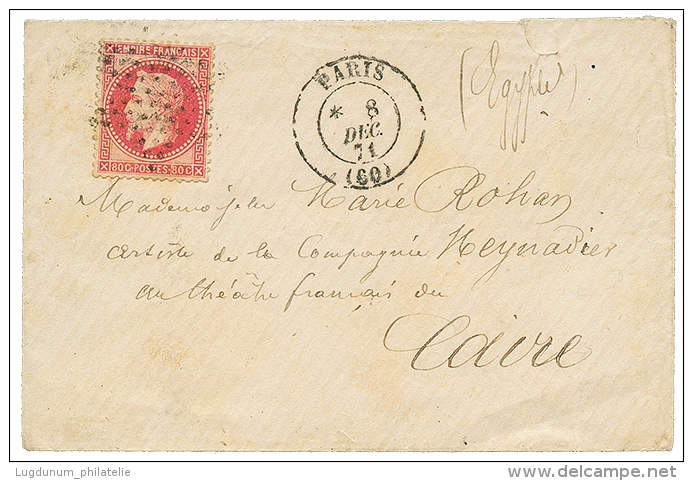 EMPIRE FRANÇAIS
80C-POSTES-80C
PARIS
* 8
DEC.
71
(60)
(Egypte)
Mademoiselle Marie Rohan
artiste de la Compagnie Meynadier
au théâtre français du
Caire
Lugdunum_philatelie
www.delcampe.net